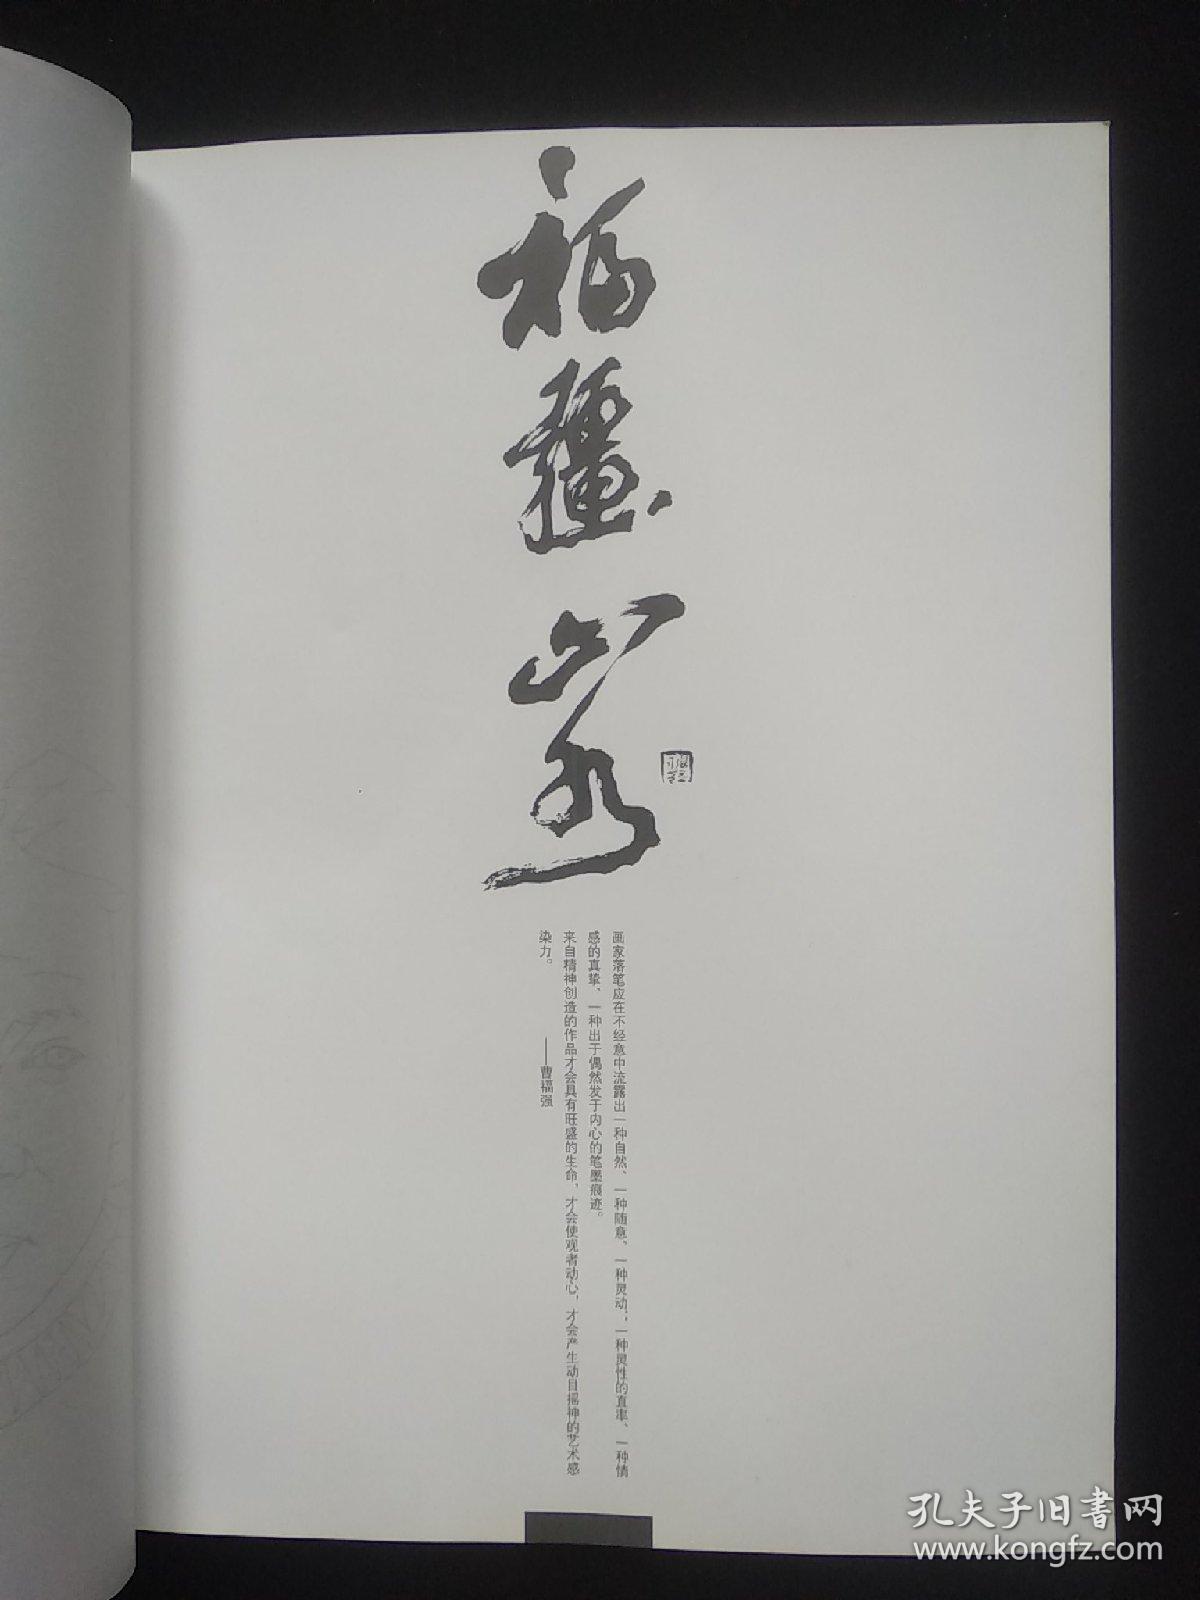 福疆
画家落笔应在不经意中流露出一种自然、一种随意、一种灵动；一种灵性的直率、一种情
感的真挚、一种出于偶然发于内心的笔墨痕迹。
来自精神创造的作品才会具有旺盛的生命，才会使观者动心，才会产生动目摇神的艺术感
染力。
——曹福强
孔夫子旧书网
www.kongfz.com